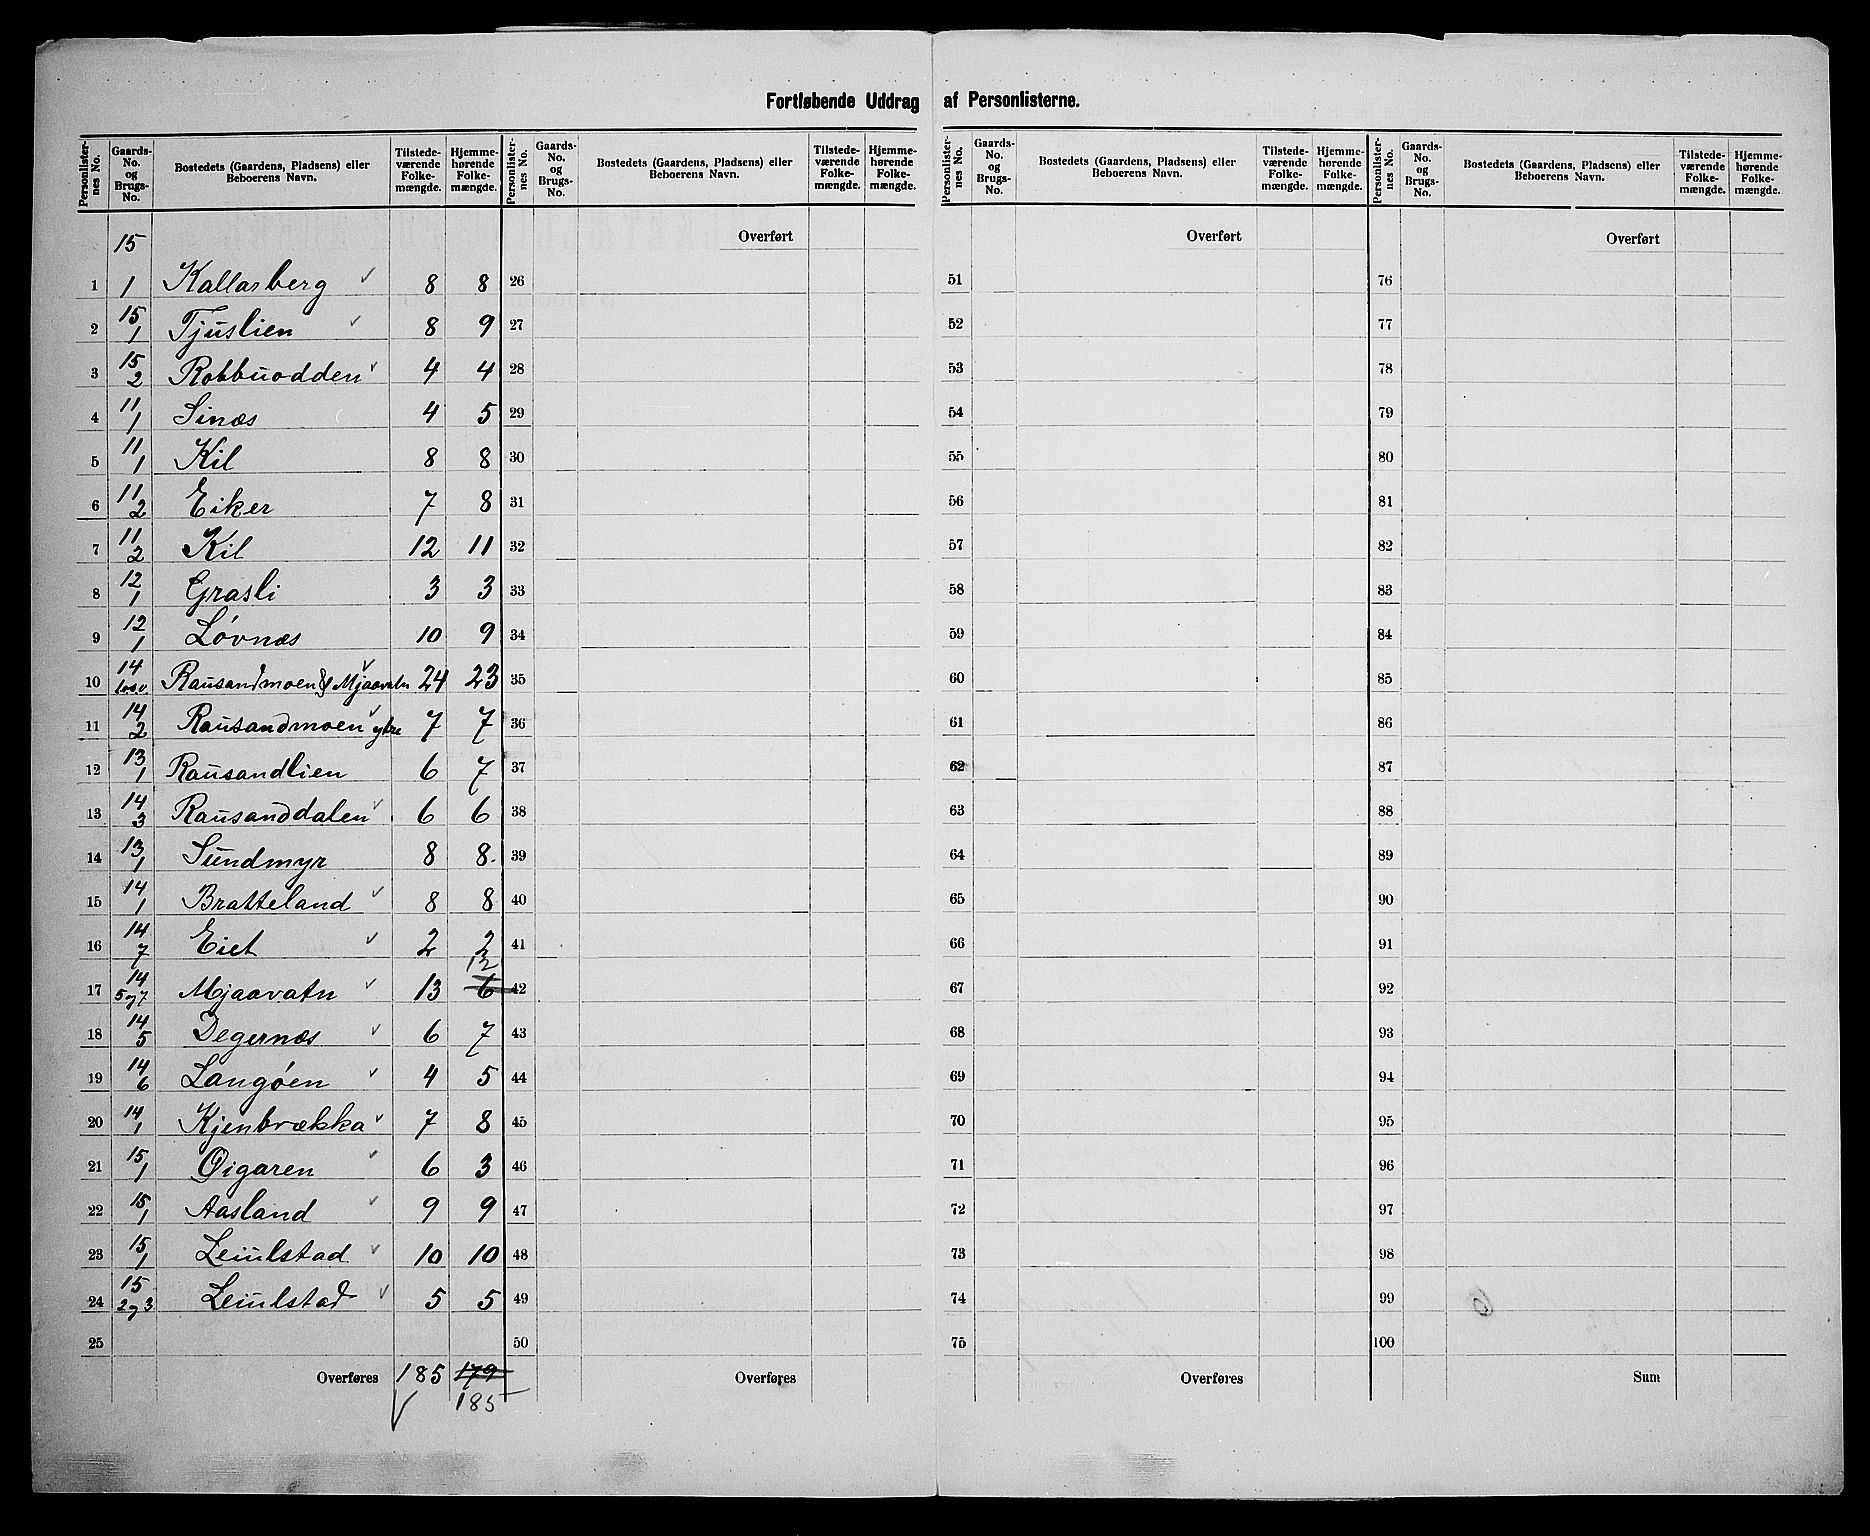 Fortløbende Uddrag af Personlisterne.
Personlister-nes No. Gaards-No. og Brugs-No. Bostedets (Gaardens, Pladsens) eller Beboerens Navn. Tilstede-værende Folke-mængde. Hjemme-hørende Folke-mængde. Personlister-nes No. Gaards-No. og Brugs-No. Bostedets (Gaardens, Pladsens) eller Beboerens Navn. Tilstede-værende Folke-mængde. Hjemme-hørende Folke-mængde. Personlister-nes No. Gaards-No. og Brugs-No. Bostedets (Gaardens, Pladsens) eller Beboerens Navn. Tilstede-værende Folke-mængde. Hjemme-hørende Folke-mængde. Personlister-nes No. Gaards-No. og Brugs-No. Bostedets (Gaardens, Pladsens) eller Beboerens Navn. Tilstede-værende Folke-mængde. Hjemme-hørende Folke-mængde.
15 Overført Overført Overført
1 1 Kallarberg ✓ 8 8 26 51 76
2 15/1 Tjuslien ✓ 8 9 27 52 77
3 15/2 Robbuodden ✓ 4 4 28 53 78
4 11/1 Sinæs 4 5 29 54 79
5 11/1 Kil 8 8 30 55 80
6 11/2 Eiker 7 8 31 56 81
7 11/2 Kil 12 11 32 57 82
8 12/1 Grasli 3 3 33 58 83
9 12/1 Løvnæs 10 9 34 59 84
10 14 Rausandmoen & Mjaavatn ✓ 24 23 35 60 85
11 14/2 Rausandmoen ytre ✓ 7 7 36 61 86
12 13/1 Rausandlien 6 7 37 62 87
13 14/3 Rausanddalen ✓ 6 6 38 63 88
14 13/1 Sundmyr 8 8. 39 64 89
15 14/1 Bratteland ✓ 8 8 40 65 90
16 14/7 Eiet ✓ 2 2 41 66 91
17 14/5 og 7 Mjaavatn ✓ 13 12 6 42 67 92
18 14/5 Degernæs ✓ 6 7 43 68 93
19 14/6 Langøen ✓ 4 5 44 69 94
20 14/1 Kjenbrækka ✓ 7 8 45 70 95
21 15/1 Øigaren ✓ 6 3 46 71 96
22 15/1 Aasland ✓ 9 9 47 72 97
23 15/1 Leiulstad ✓ 10 10 48 73 98
24 15/2 og 3 Leiulstad ✓ 5 5 49 74 99
25 50 75 100
Overføres 185 179 Overføres Overføres Sum
✓ 185